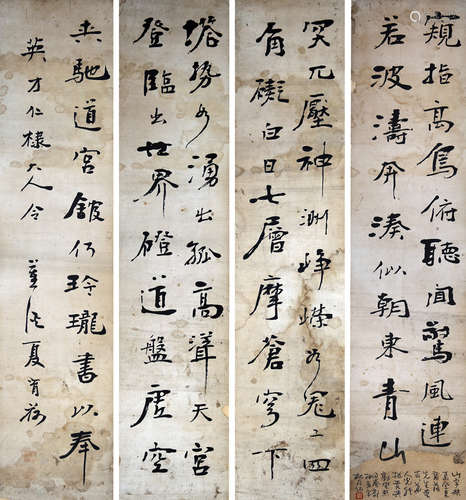 窺指高鳥俯聽聞驚風連
若波濤奔湊似朝東青山
突兀壓神洲崢嶸如鬼工四
角礙白日七層摩蒼穹下
塔勢如湧出孤高聳天宮
登臨出世界磴道盤虛空
夾馳道宮館何玲瓏書以奉
英才仁棣大人令
夏